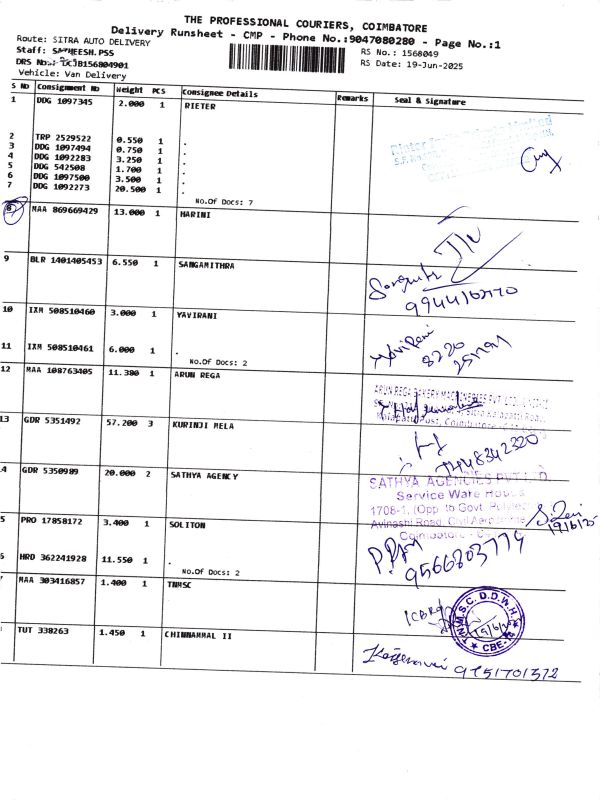 THE PROFESSIONAL COURIERS, COIMBATORE
Delivery Runsheet - CMP - Phone No.:9047080280 - Page No.:1
Route: SITRA AUTO DELIVERY
Staff: SATHEESH.PSS
RS No. : 1568049
DRS No.: DCJB156804901
RS Date: 19-Jun-2025
Vehicle: Van Delivery
S No Consignment No Weight PCS Consignee Details Remarks Seal & Signature
1 DDG 1097345 2.000 1 RIETER
2 TRP 2529522 0.550 1 .
3 DDG 1097494 0.750 1 .
4 DDG 1092283 3.250 1 .
5 DDG 542508 1.700 1 .
6 DDG 1097500 3.500 1 .
7 DDG 1092273 20.500 1 .
No.Of Docs: 7
8 MAA 869669429 13.000 1 HARINI
9 BLR 1401405453 6.550 1 SANGAMITHRA
10 IXM 508510460 3.000 1 YAVIRANI
8220
11 IXM 508510461 6.000 1 .
No.Of Docs: 2
12 MAA 108763405 11.380 1 ARUN REGA
ARUN REGA BAKERY MACHINERIES PVT LTD
13 GDR 5351492 57.200 3 KURINJI MELA
7448342320
14 GDR 5350989 20.000 2 SATHYA AGENCY
SATHYA AGENCIES PVT LTD.
Service Ware House
1708-1, (Opp to Govt
Avinashi Road, Civil Aerodrome
Coimbatore
19/6/25
5 PRO 17858172 3.400 1 SOLITON
9566803779
6 HRD 362241928 11.550 1 .
No.Of Docs: 2
7 MAA 303416857 1.400 1 TNMSC
T.N.M.S.C. D.D.W.H.
CBE-14
TUT 338263 1.450 1 CHINNAMMAL II
9751701372